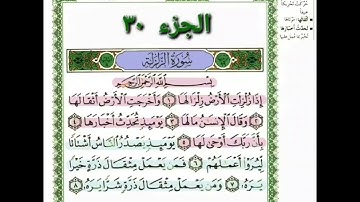 الجزء ٣٠
سُورَةُ الزَّلْزَلَةِ
بِسْمِ اللَّهِ الرَّحْمَٰنِ الرَّحِيمِ
إِذَا زُلْزِلَتِ الْأَرْضُ زِلْزَالَهَا ١ وَأَخْرَجَتِ الْأَرْضُ أَثْقَالَهَا
٢ وَقَالَ الْإِنسَٰنُ مَا لَهَا ٣ يَوْمَئِذٍ تُحَدِّثُ أَخْبَارَهَا ٤
بِأَنَّ رَبَّكَ أَوْحَىٰ لَهَا ٥ يَوْمَئِذٍ يَصْدُرُ النَّاسُ أَشْتَاتًا
لِّيُرَوْا أَعْمَٰلَهُمْ ٦ فَمَن يَعْمَلْ مِثْقَالَ ذَرَّةٍ خَيْرًا
يَرَهُ ٧ وَمَن يَعْمَلْ مِثْقَالَ ذَرَّةٍ شَرًّا يَرَهُ ٨